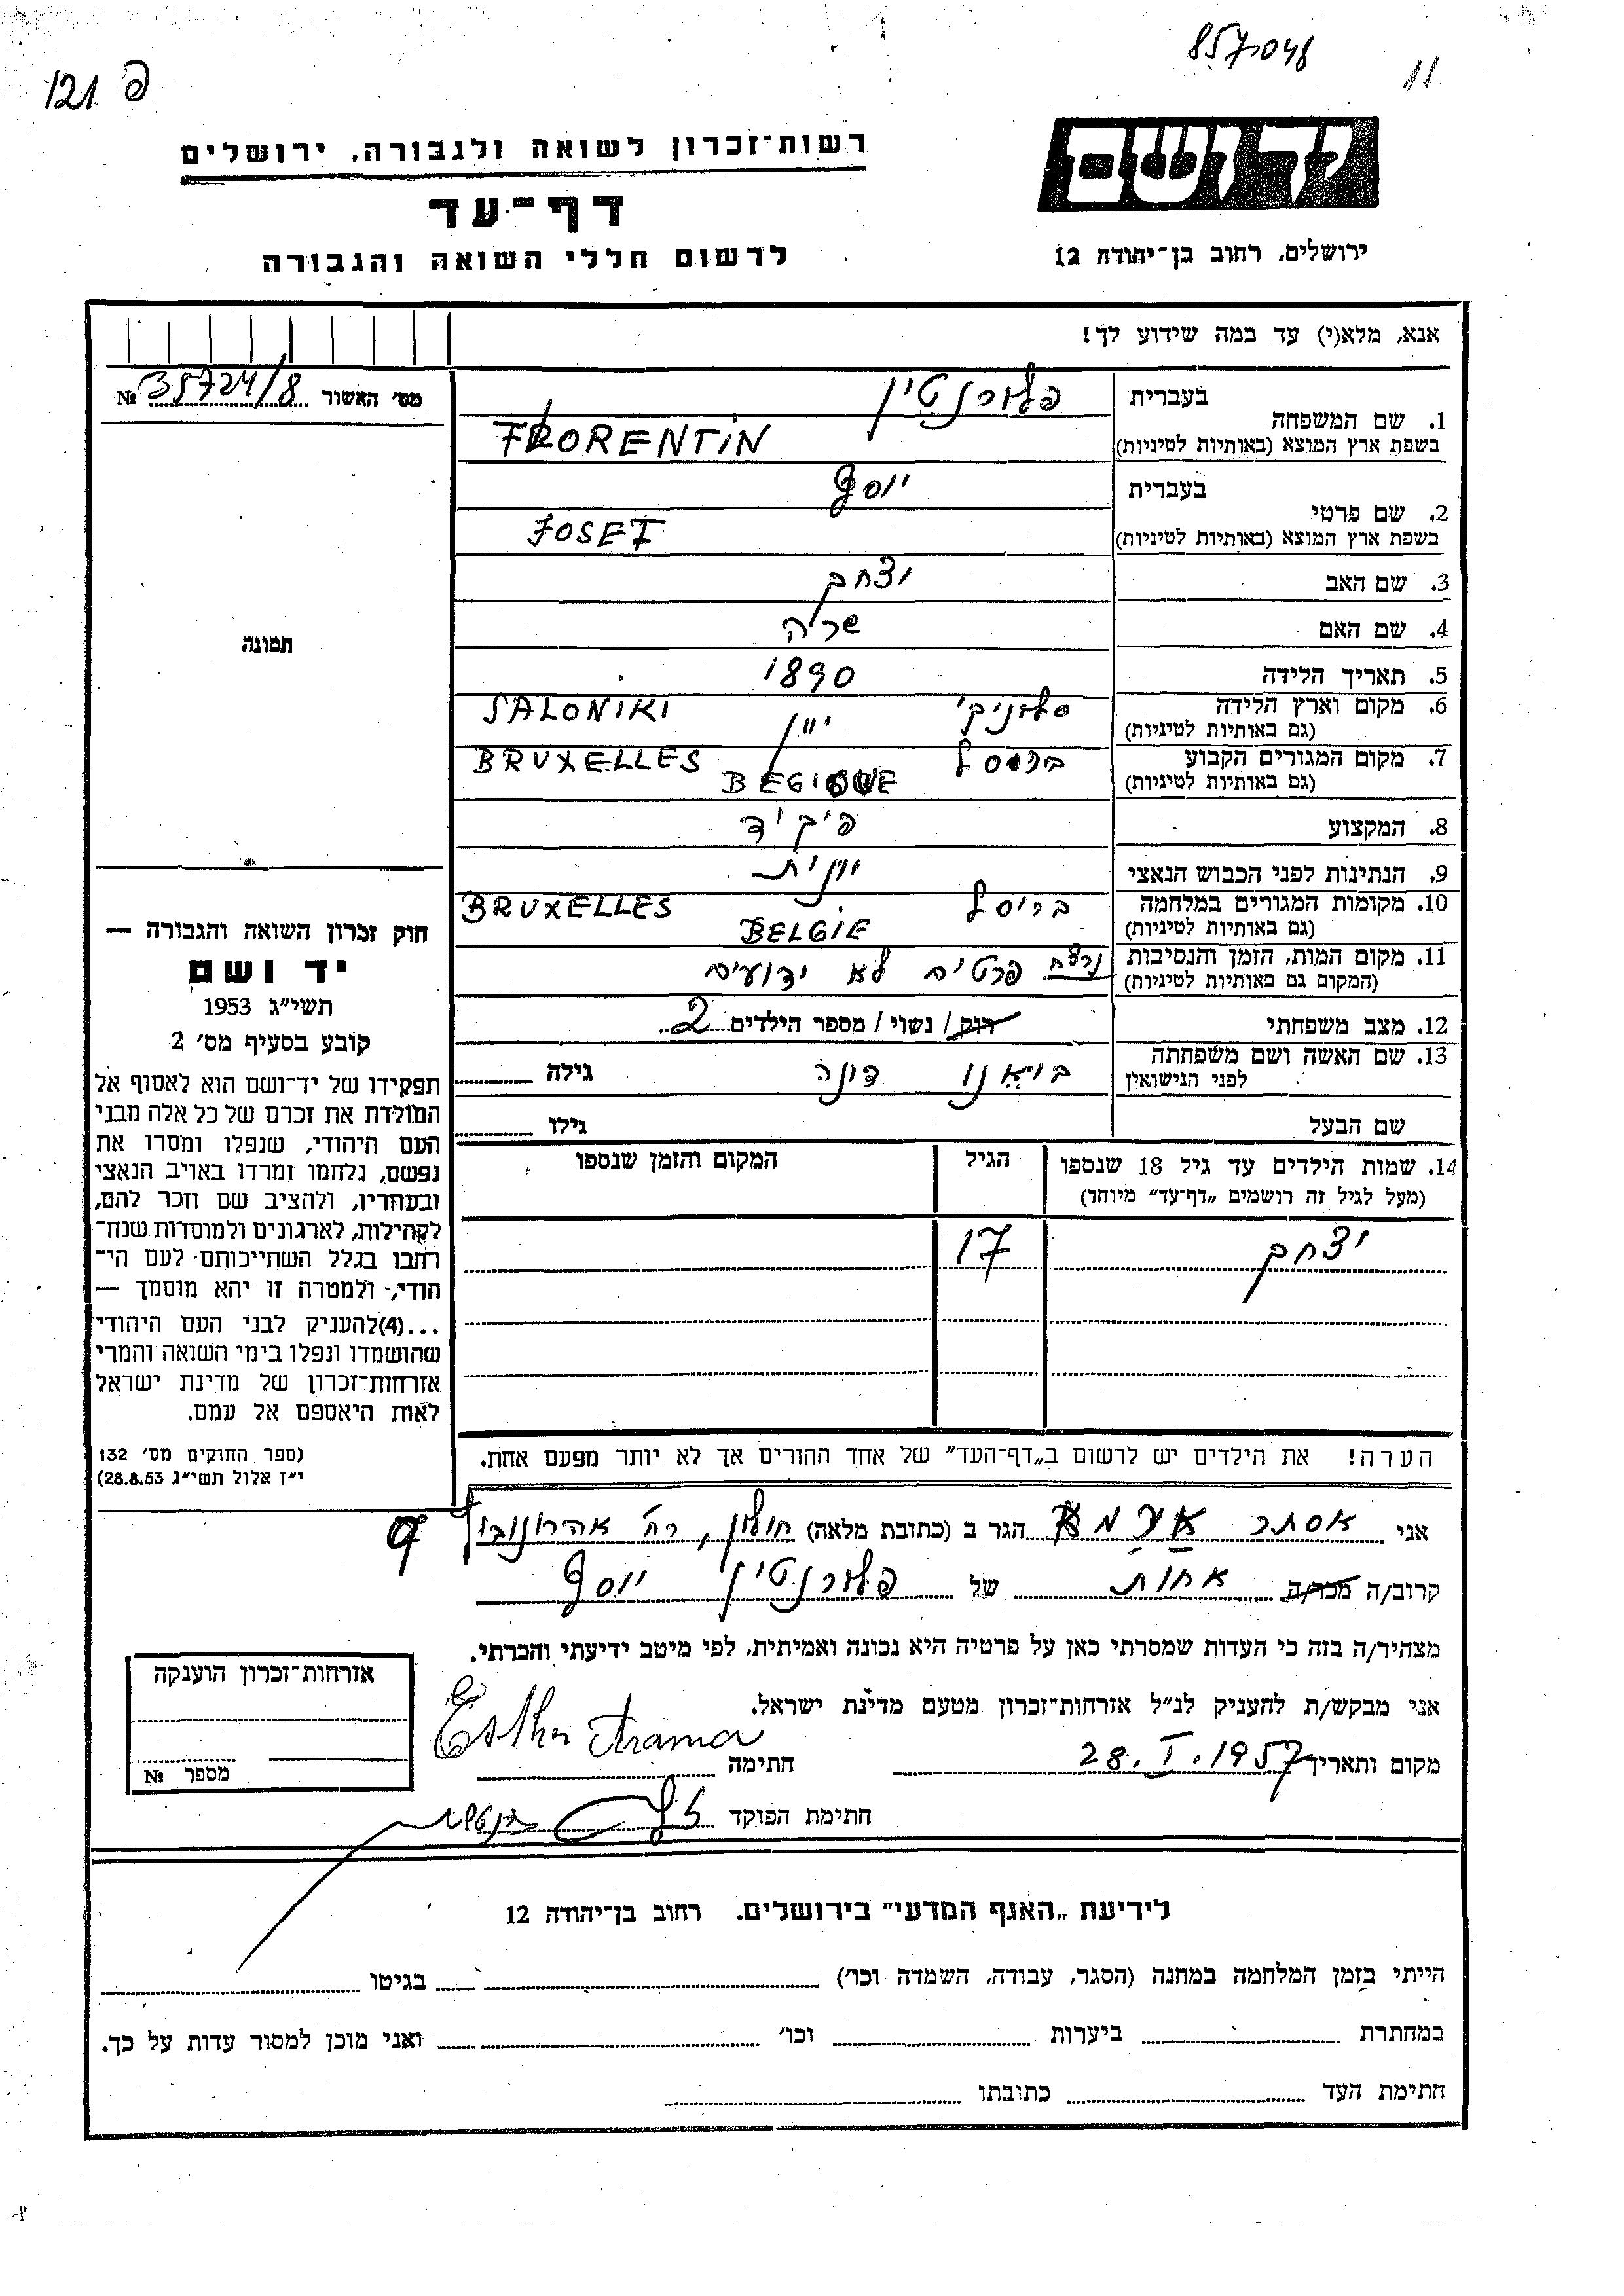 857048
11
פ 121
יד ושם
ירושלים, רחוב בן־יהודה 12
רשות־זכרון לשואה ולגבורה, ירושלים
דף־עד
לרשום חללי השואה והגבורה
אנא, מלא(י) עד במה שידוע לך!
מס׳ האשור № 35724/8
תמונה
1. שם המשפחה
בעברית פלורנטין
בשפת ארץ המוצא (באותיות לטיניות) FLORENTIN
2. שם פרטי
בעברית יוסף
בשפת ארץ המוצא (באותיות לטיניות) JOSEF
3. שם האב יצחק
4. שם האם שרה
5. תאריך הלידה 1890
6. מקום וארץ הלידה (גם באותיות לטיניות) סלוניקי יוון SALONIKI
7. מקום המגורים הקבוע (גם באותיות לטיניות) בריסל BRUXELLES
BEGIQUE
8. המקצוע פקיד
9. הנתינות לפני הכבוש הנאצי יוונית
10. מקומות המגורים במלחמה (גם באותיות לטיניות) בריסל BRUXELLES
BELGIE
11. מקום המות, הזמן והנסיבות (המקום גם באותיות לטיניות) נרצח פרטים לא ידועים
12. מצב משפחתי רוק / נשוי / מספר הילדים 2
13. שם האשה ושם משפחתה לפני הנישואין בואנו דונה גילה
שם הבעל גילו
14. שמות הילדים עד גיל 18 שנספו (מעל לגיל זה רושמים „דף־עד" מיוחד) הגיל המקום והזמן שנספו
יצחק 17
הערה! את הילדים יש לרשום ב„דף־העד" של אחד ההורים אך לא יותר מפעם אחת.
חוק זכרון השואה והגבורה —
יד ושם
תשי״ג 1953
קובע בסעיף מס׳ 2
תפקידו של יד־ושם הוא לאסוף אל
המולדת את זכרם של כל אלה מבני
העם היהודי, שנפלו ומסרו את
נפשם, נלחמו ומרדו באויב הנאצי
ובעוזריו, ולהציב שם וזכר להם,
לקהילות, לארגונים ולמוסדות שנח־
רבו בגלל השתייכותם לעם הי־
הודי, ולמטרה זו יהא מוסמך —
...(4) להעניק לבני העם היהודי
שהושמדו ונפלו בימי השואה והמרי
אזרחות־זכרון של מדינת ישראל
לאות היאספם אל עמם.
(ספר החוקים מס׳ 132
י״ז אלול תשי״ג 28.8.53)
אני אסתר ארמא הגר ב (כתובת מלאה) חולון, רח׳ אהרונוביץ 9
קרוב/ה מכר/ה אחות של פלורנטין יוסף
מצהיר/ה בזה כי העדות שמסרתי כאן על פרטיה היא נכונה ואמיתית, לפי מיטב ידיעתי והכרתי.
אני מבקש/ת להעניק לנ״ל אזרחות־זכרון מטעם מדינת ישראל.
מקום ותאריך 28.I.1957 חתימה Esther Arama
חתימת הפוקד
אזרחות־זכרון הוענקה
מספר №
לידיעת „האגף המדעי" בירושלים. רחוב בן־יהודה 12
הייתי בזמן המלחמה במחנה (הסגר, עבודה, השמדה וכו׳) בגיטו
במחתרת ביערות וכו׳ ואני מוכן למסור עדות על כך.
חתימת העד כתובתו